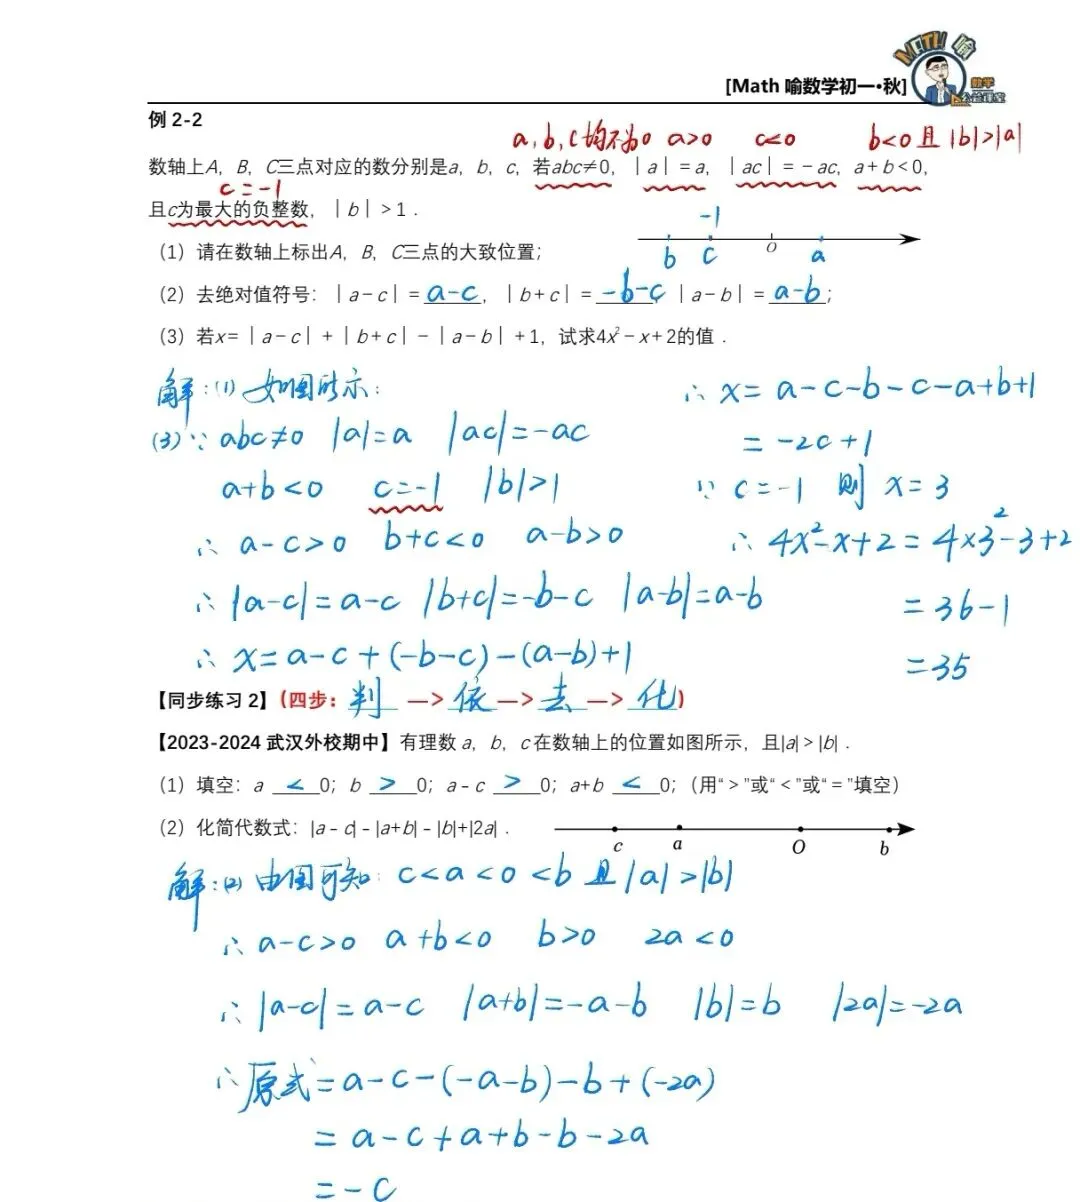 [Math 喻数学初一•秋]
MATH 喻
数学
公益课堂
例 2-2
a, b, c 均不为0 a>0 c<0 b<0 且 |b|>|a|
数轴上A，B，C三点对应的数分别是a，b，c，若abc≠0，｜a｜=a，｜ac｜=－ac，a+b<0，
c=-1
且c为最大的负整数，｜b｜>1．
-1
（1）请在数轴上标出A，B，C三点的大致位置；
b c O a
（2）去绝对值符号：｜a－c｜= a-c ，｜b+c｜= -b-c ｜a－b｜= a-b ；
（3）若x=｜a－c｜+｜b+c｜－｜a－b｜+1，试求4x²－x+2的值．
解:(1) 如图所示:
(3)∵ abc≠0 |a|=a |ac|=-ac
a+b<0 c=-1 |b|>1
∴ a-c>0 b+c<0 a-b>0
∴ |a-c|=a-c |b+c|=-b-c |a-b|=a-b
∴ x=a-c+(-b-c)-(a-b)+1
∴ x=a-c-b-c-a+b+1
=-2c+1
∵ c=-1 则 x=3
∴ 4x²-x+2=4×3²-3+2
=36-1
=35
【同步练习 2】(四步：判 —> 依 —> 去 —> 化)
【2023-2024 武汉外校期中】有理数 a，b，c 在数轴上的位置如图所示，且|a|>|b|．
（1）填空：a < 0；b > 0；a－c > 0；a+b < 0；（用“＞”或“＜”或“＝”填空）
（2）化简代数式：|a－c|－|a+b|－|b|+|2a|．
c a O b
解:(2) 由图可知: c<a<0<b 且|a|>|b|
∴ a-c>0 a+b<0 b>0 2a<0
∴ |a-c|=a-c |a+b|=-a-b |b|=b |2a|=-2a
∴ 原式=a-c-(-a-b)-b+(-2a)
=a-c+a+b-b-2a
=-c